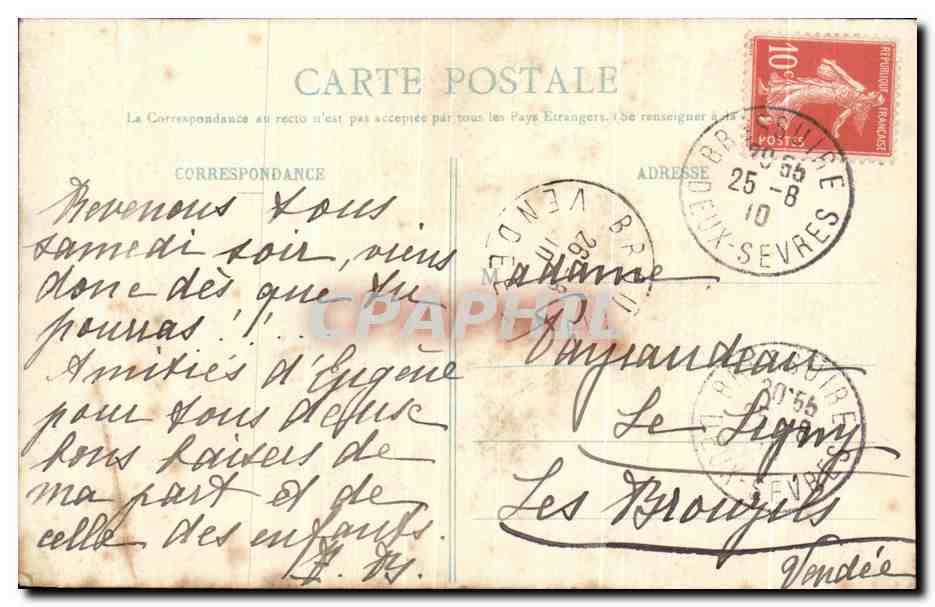 CARTE POSTALE
La Correspondance au recto n'est pas acceptée par tous les Pays Etrangers. (Se renseigner à la
CORRESPONDANCE
ADRESSE
10c
REPUBLIQUE FRANÇAISE
POSTES
BRESSUIRE
20*55
25 -8
10
DEUX-SEVRES
Revenons tous
samedi soir, viens
donc dès que tu
pourras!!..
Amitiés d'Eugène
pour tous deux
bons baisers de
ma part et de
celle des enfants.
VENDEE
26
10
Madame
Le Ligny
Les Brouzils
Vendée
20*55
DEUX-SEVRES
CPAPHIL